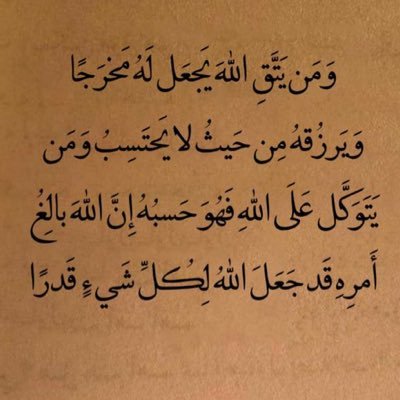 وَمَن يَتَّقِ اللهَ يَجعَل لَهُ مَخرَجًا
وَيَرزُقهُ مِن حَيثُ لا يَحتَسِبُ وَمَن
يَتَوَكَّل عَلَى اللهِ فَهُوَ حَسبُهُ إِنَّ اللهَ بالِغُ
أَمرِهِ قَد جَعَلَ اللهُ لِكُلِّ شَيءٍ قَدرًا